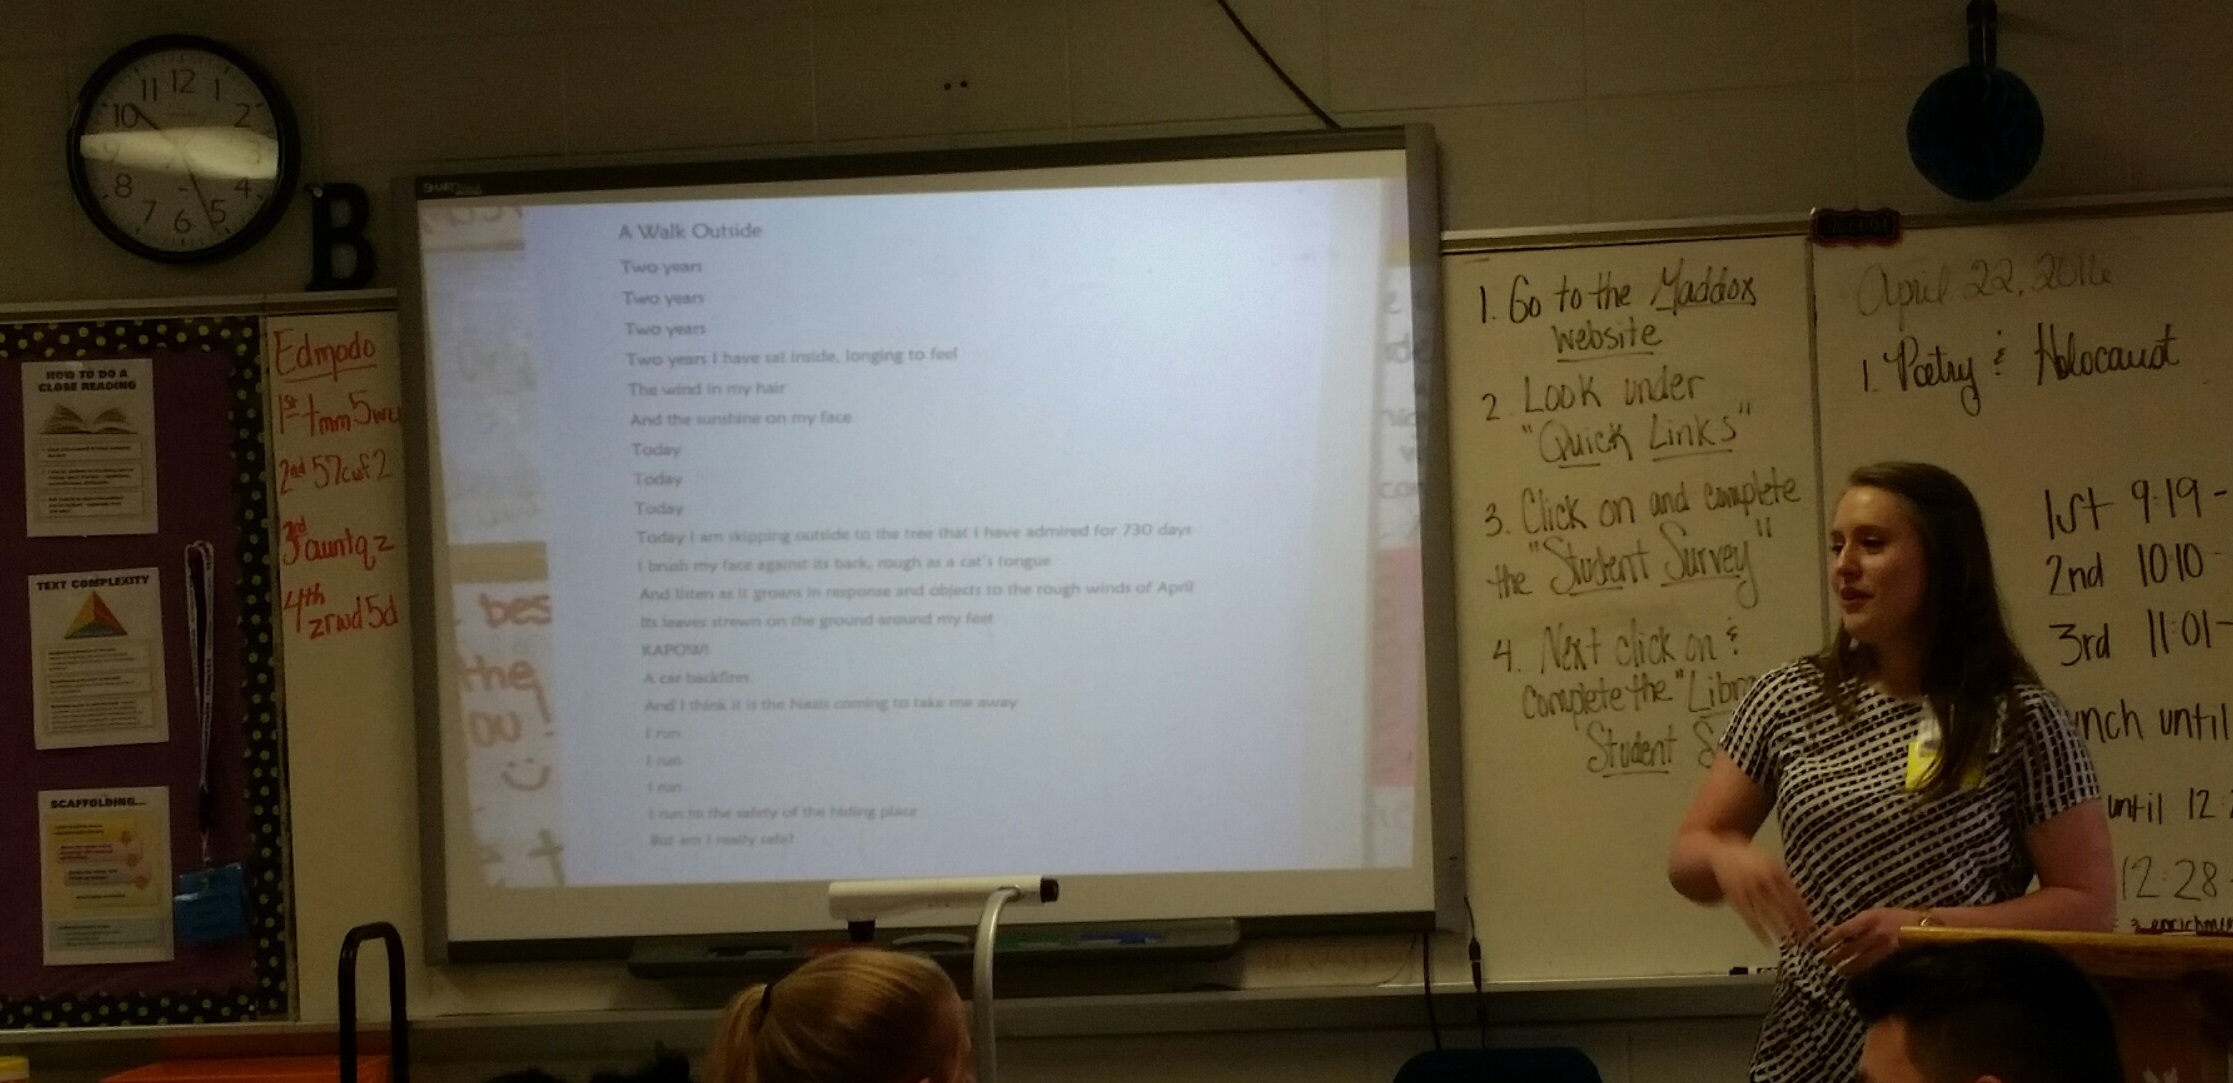 12
1
2
3
4
5
6
7
8
9
10
11
B
HOW TO DO A
CLOSE READING
TEXT COMPLEXITY
SCAFFOLDING...
Edmodo
1st
2nd 57cwf2
3rd auntqz
4th
zrwd5d
SMART
A Walk Outside
Two years
Two years
Two years
Two years I have sat inside, longing to feel
The wind in my hair
And the sunshine on my face
Today
Today
Today
Today I am skipping outside to the tree that I have admired for 730 days
I brush my face against its bark, rough as a cat's tongue
And listen as it groans in response and objects to the rough winds of April
Its leaves strewn on the ground around my feet
KAPOW!
A car backfires
And I think it is the Nazis coming to take me away
I run
I run
I run
I run to the safety of the hiding place
But am I really safe?
bes
the
ou!
1. Go to the Maddox
Website
2. Look under
"Quick Links"
3. Click on and complete
the "Student Survey"
4. Next click on &
Complete the "Libr
Student S
April 22, 2016
1. Poetry & Holocaust
1st 9:19-
2nd 10:10-
3rd 11:01-
nch until
until 12:
12:28-